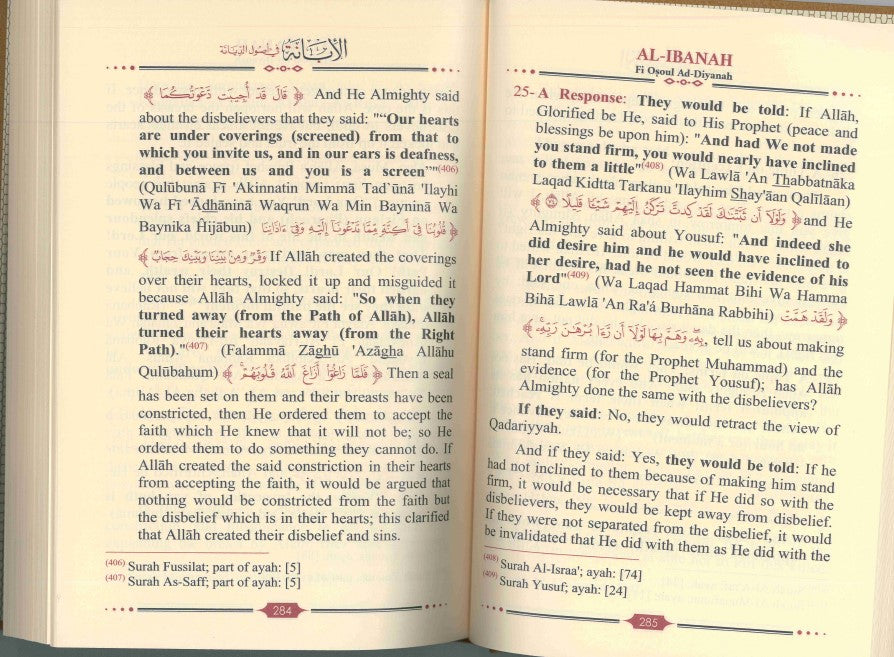 الإبانة في أصول الديانة
﴿ قَالَ قَدْ أُجِيبَت دَّعْوَتُكُمَا ﴾ And He Almighty said
about the disbelievers that they said: "“Our hearts
are under coverings (screened) from that to
which you invite us, and in our ears is deafness,
and between us and you is a screen”"(406)
(Qulūbunā Fī 'Akinnatin Mimmā Tad`ūnā 'Ilayhi
Wa Fī 'Ādhāninā Waqrun Wa Min Bayninā Wa
Baynika Ĥijābun) ﴿ قُلُوبُنَا فِىٓ أَكِنَّةٍ مِّمَّا تَدْعُونَآ إِلَيْهِ وَفِىٓ ءَاذَانِنَا
وَقْرٌ وَمِنۢ بَيْنِنَا وَبَيْنِكَ حِجَابٌ ﴾ If Allāh created the coverings
over their hearts, locked it up and misguided it
because Allāh Almighty said: "So when they
turned away (from the Path of Allāh), Allāh
turned their hearts away (from the Right
Path)."(407) (Falammā Zāghū 'Azāgha Allāhu
Qulūbahum) ﴿ فَلَمَّا زَاغُوٓا۟ أَزَاغَ ٱللَّهُ قُلُوبَهُمْ ﴾ Then a seal
has been set on them and their breasts have been
constricted, then He ordered them to accept the
faith which He knew that it will not be; so He
ordered them to do something they cannot do. If
Allāh created the said constriction in their hearts
from accepting the faith, it would be argued that
nothing would be constricted from the faith but
the disbelief which is in their hearts; this clarified
that Allāh created their disbelief and sins.
(406) Surah Fussilat; part of ayah: [5]
(407) Surah As-Saff; part of ayah: [5]
284
AL-IBANAH
Fi Oṣoul Ad-Diyanah
25- A Response: They would be told: If Allāh,
Glorified be He, said to His Prophet (peace and
blessings be upon him): "And had We not made
you stand firm, you would nearly have inclined
to them a little"(408) (Wa Lawlā 'An Thabbatnāka
Laqad Kidtta Tarkanu 'Ilayhim Shay'āan Qalīlāan)
﴿ وَلَوْلَآ أَن ثَبَّتْنَٰكَ لَقَدْ كِدتَّ تَرْكَنُ إِلَيْهِمْ شَيْـًٔا قَلِيلًا ٧٤ ﴾ and He
Almighty said about Yousuf: "And indeed she
did desire him and he would have inclined to
her desire, had he not seen the evidence of his
Lord"(409) (Wa Laqad Hammat Bihi Wa Hamma
Bihā Lawlā 'An Ra'á Burhāna Rabbihi) ﴿ وَلَقَدْ هَمَّتْ
بِهِۦ ۖ وَهَمَّ بِهَا لَوْلَآ أَن رَّءَا بُرْهَٰنَ رَبِّهِۦ ﴾, tell us about making
stand firm (for the Prophet Muhammad) and the
evidence (for the Prophet Yousuf); has Allāh
Almighty done the same with the disbelievers?
If they said: No, they would retract the view of
Qadariyyah.
And if they said: Yes, they would be told: If he
had not inclined to them because of making him stand
firm, it would be necessary that if He did so with the
disbelievers, they would be kept away from disbelief.
If they were not separated from the disbelief, it would
be invalidated that He did with them as He did with the
(408) Surah Al-Israa'; ayah: [74]
(409) Surah Yusuf; ayah: [24]
285